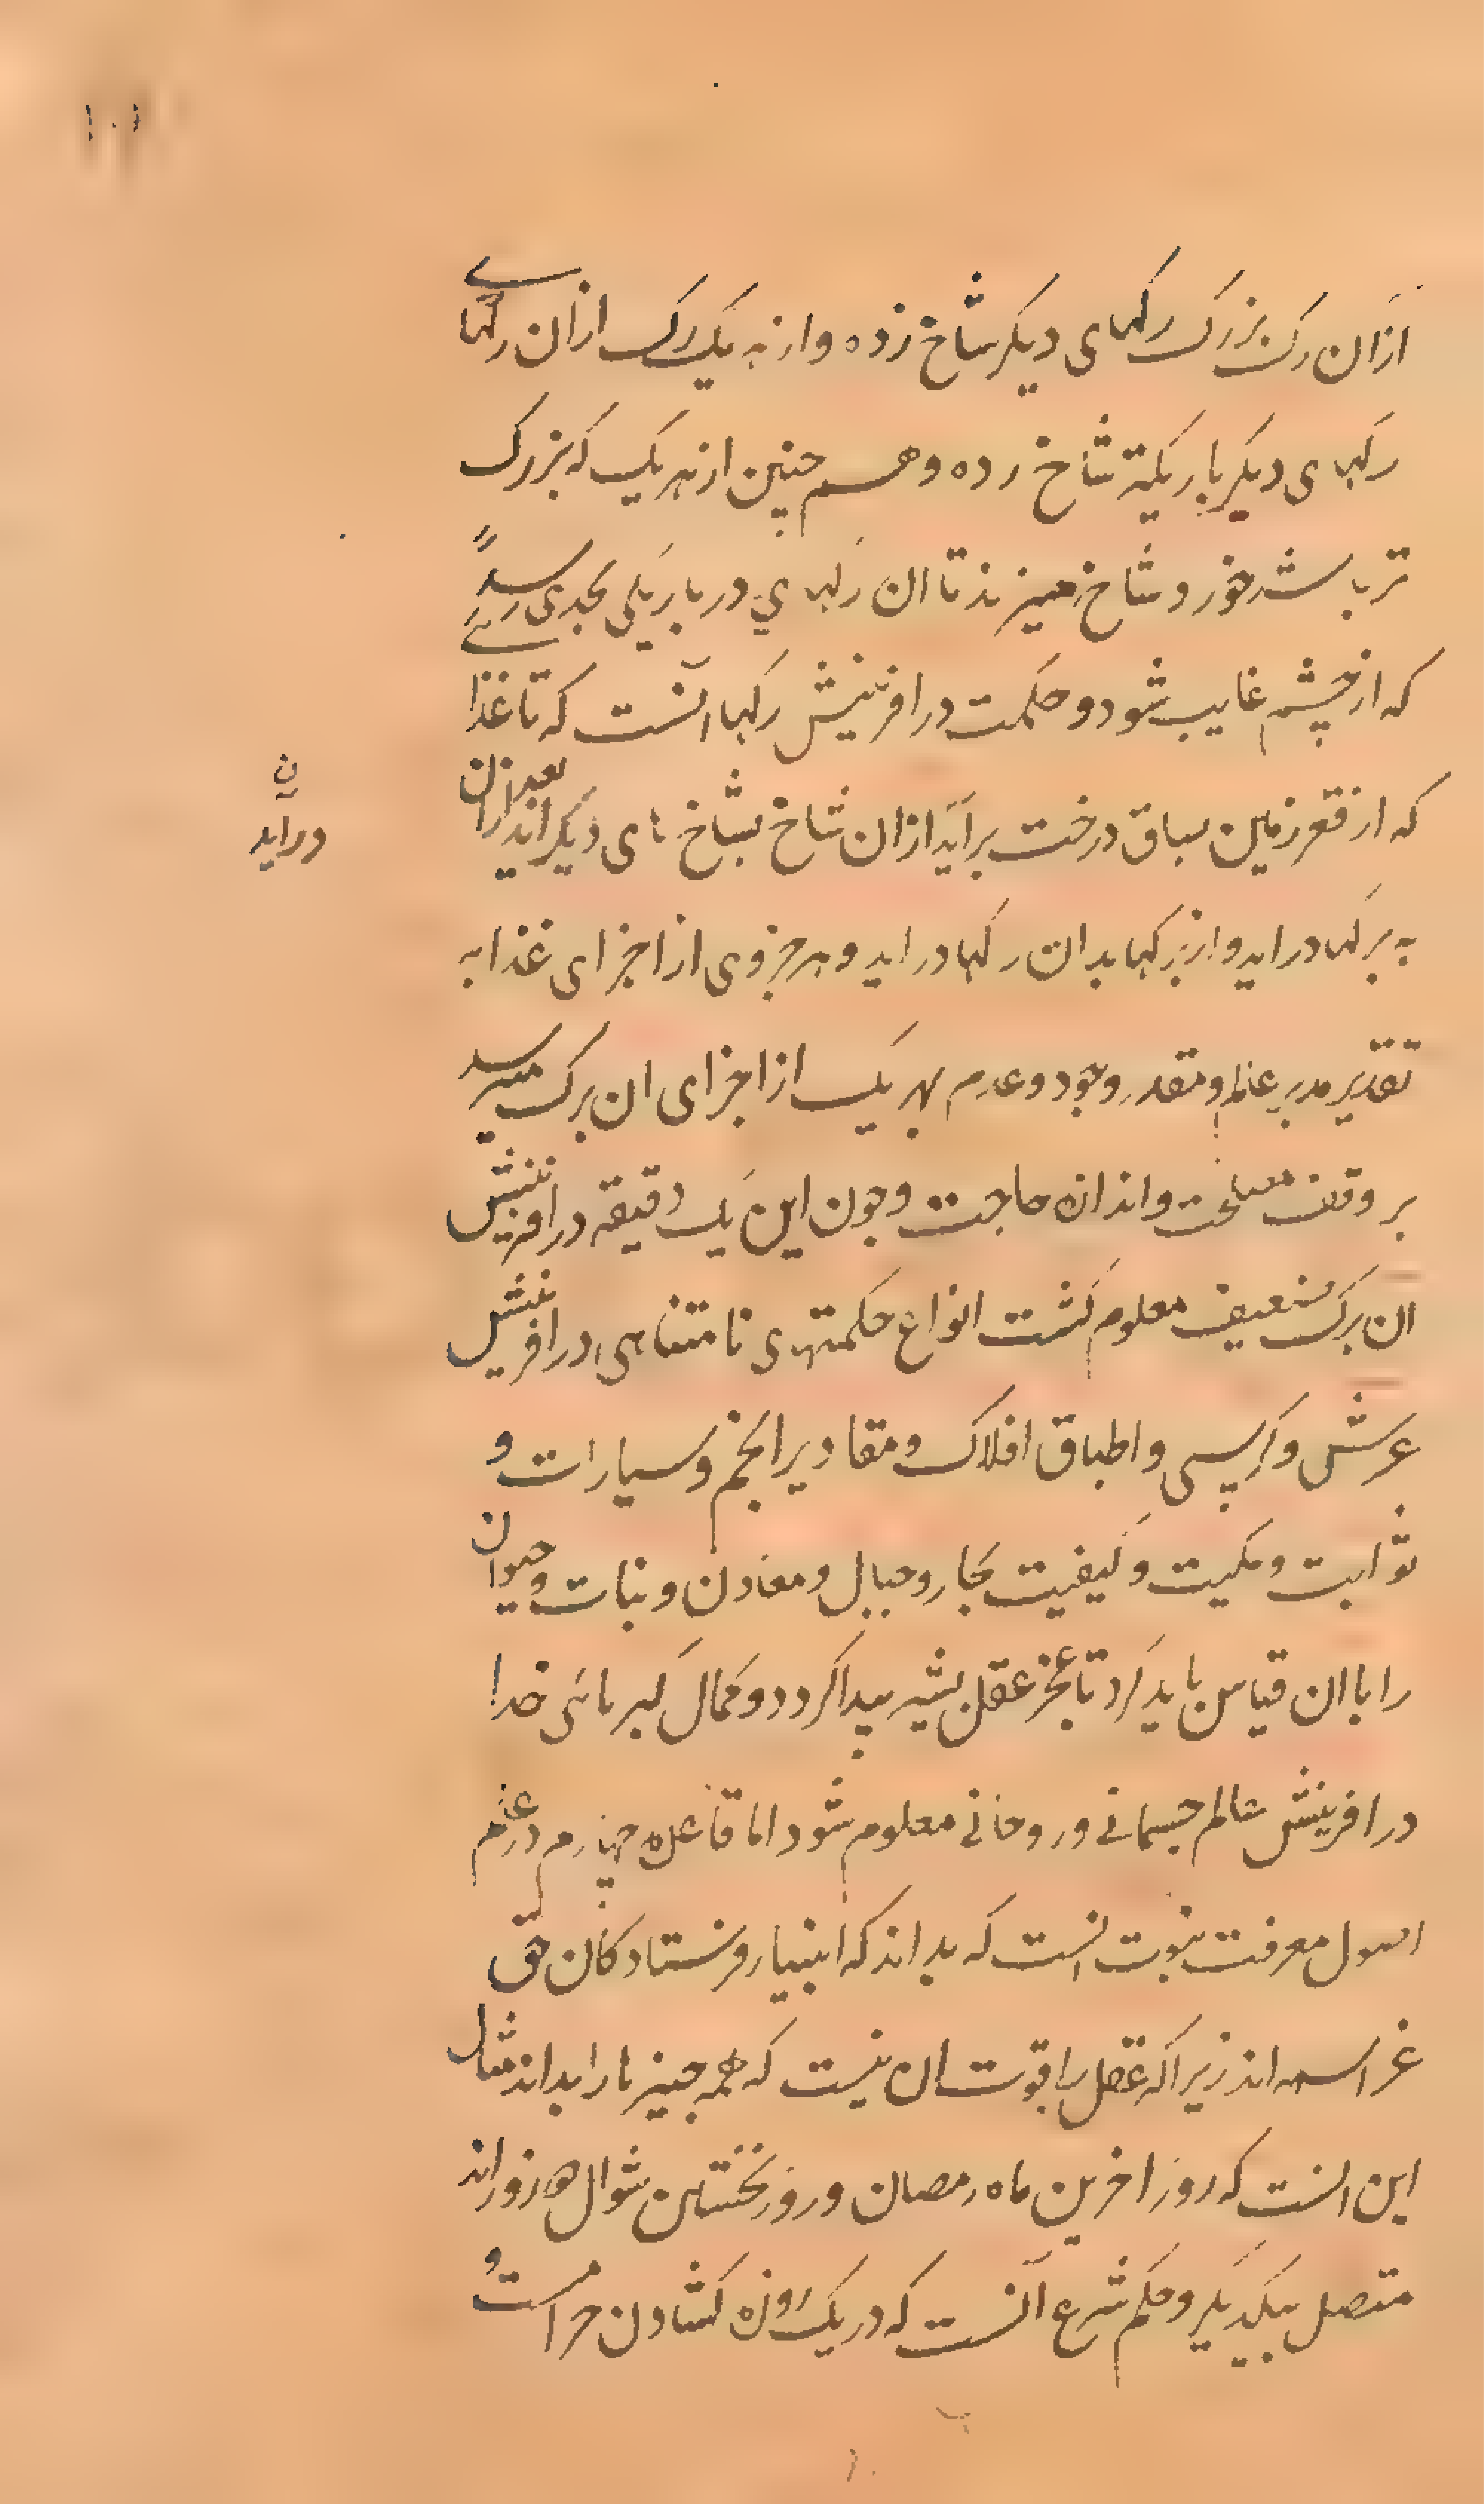 ازان رک بزرک رکهای دیکر شاخ زده و از هر یک رک ازان رکهای
رکهای دیکر باریکتر شاخ زده و هم چنین از هر یک که بزرک
تر باشد خورد شاخ میزند تا ان رکهای در باریکی بحدی رسد
که از چشم غایب شود و حکمت در افرینش رکها آنست که تا غذا
که از قعر زمین بساق درخت برآید ازان شاخ بشاخ های دیکر اندر آید بعد ازان
ن
درآید
به برکها در اید و از برکها بدان رکها در اید و هر جزوی از اجزای غذا به
تقدیر مدبر عالم و مقدر وجود و عدم بهر یک از اجزای ان برک میرسد
بر وفق مصلحت و اندازه حاجت و چون این یک دقیقه در افرینش
ان برک ضعیف معلوم کشت انواع حکمتهای نا متناهی در افرینش
عرش و کرسی و اطباق افلاک و مقادیر انجم و سیارات و
ثوابت و مکیت و کیفیت بحار و جبال و معادن و نبات و حیوان
را با ان قیاس باید کرد تا عجز عقل بشر پیدا کردد و کمال کبریائی خدا
در افرینش عالم جسمانی و روحانی معلوم شود اما قاعده چهارم در علم
اصول معرفت نبوت انست که بداند که انبیا فرستادکان حق
عز اسمه اند زیرا که عقل را قوت ان نیست که همه چیز ها را بداند مثال
این انست که روز اخرین ماه رمضان و روز نخستین شوال هر دو روز اند
متصل بیکدیکر و حکم شرع آنست که در یک روزه کشادن حرامست و